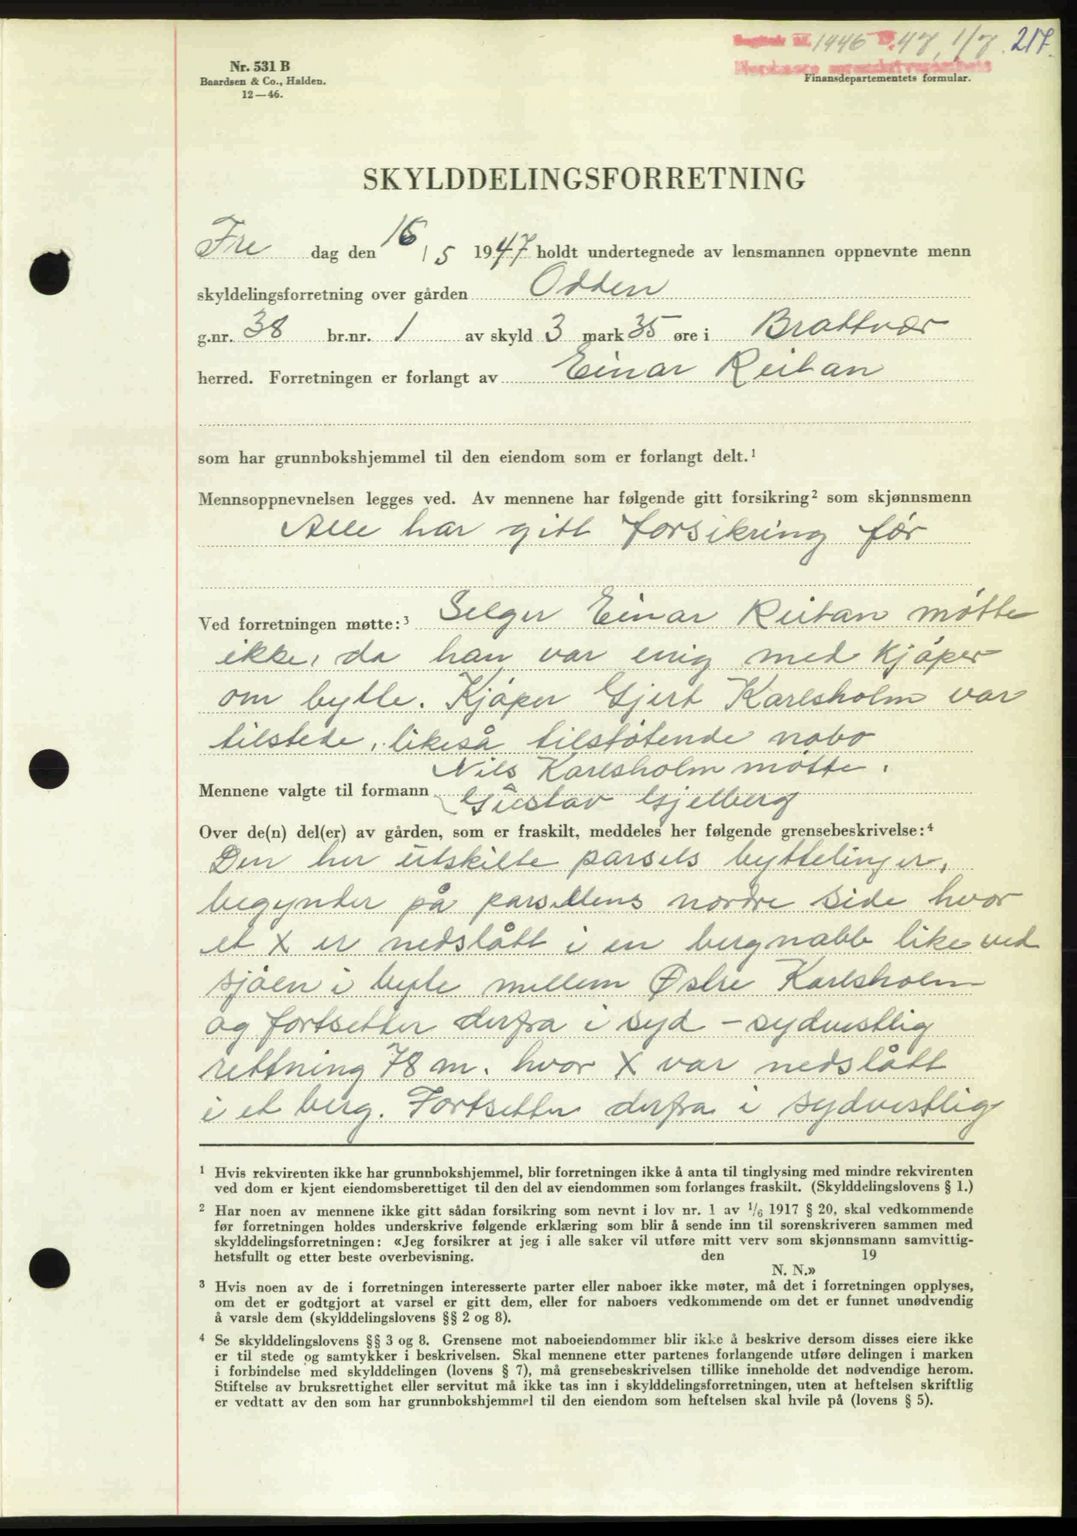 1446 19 47, 1/7 217.
Nr. 531 B
Baardsen & Co., Halden.
12—46.
Finansdepartementets formular.
SKYLDDELINGSFORRETNING
Fre dag den 16/5 1947 holdt undertegnede av lensmannen oppnevnte menn
skyldelingsforretning over gården Odden
g.nr. 38 br.nr. 1 av skyld 3 mark 35 øre i Brattvær
herred. Forretningen er forlangt av Einar Reitan
som har grunnbokshjemmel til den eiendom som er forlangt delt.¹
Mennsoppnevnelsen legges ved. Av mennene har følgende gitt forsikring² som skjønnsmenn
Alle har gitt forsikring før
Ved forretningen møtte:³ Selger Einar Reitan møtte
ikke, da han var enig med kjøper
om bytte. Kjøper Gjert Karlsholm var
tilstede, likeså tilstøtende nabo
Nils Karlsholm møtte.
Mennene valgte til formann Gustav Gjelberg
Over de(n) del(er) av gården, som er fraskilt, meddeles her følgende grensebeskrivelse:⁴
Den her utskilte parsels byttelinjer,
begynder på parsellens nordre side hvor
et X er nedslått i en bergnabb like ved
sjøen i byte mellem Østre Karlsholm
og fortsetter derfra i syd - sydvestlig
rettning 78 m. hvor X var nedslått
i et berg. Fortsetter derfra i sydvestlig
¹ Hvis rekvirenten ikke har grunnbokshjemmel, blir forretningen ikke å anta til tinglysing med mindre rekvirenten
ved dom er kjent eiendomsberettiget til den del av eiendommen som forlanges fraskilt. (Skylddelingslovens § 1.)
² Har noen av mennene ikke gitt sådan forsikring som nevnt i lov nr. 1 av ¹/₆ 1917 § 20, skal vedkommende
før forretningen holdes underskrive følgende erklæring som blir å sende inn til sorenskriveren sammen med
skylddelingsforretningen: «Jeg forsikrer at jeg i alle saker vil utføre mitt verv som skjønnsmann samvittig-
hetsfullt og etter beste overbevisning. den 19
N. N.»
³ Hvis noen av de i forretningen interesserte parter eller naboer ikke møter, må det i forretningen opplyses,
om det er godtgjort at varsel er gitt dem, eller for naboers vedkommende om det er funnet unødvendig
å varsle dem (skylddelingslovens §§ 2 og 8).
⁴ Se skylddelingslovens §§ 3 og 8. Grensene mot naboeiendommer blir ikke å beskrive dersom disses eiere ikke
er til stede og samtykker i beskrivelsen. Skal mennene etter partenes forlangende utføre delingen i marken
i forbindelse med skylddelingen (lovens § 7), må grensebeskrivelsen tillike inneholde det nødvendige herom.
Stiftelse av bruksrettighet eller servitut må ikke tas inn i skylddelingsforretningen, uten at heftelsen skriftlig
er vedtatt av den som har grunnbokshjemmel til den eiendom som heftelsen skal hvile på (lovens § 5).